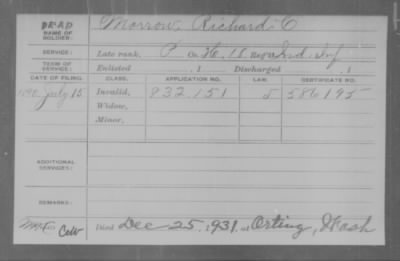 DEAD
NAME OF SOLDIER: Morrow, Richard C
SERVICE: Late rank, P Co. H, 18 Reg't Ind. Inf
TERM OF SERVICE: Enlisted , 1 Discharged , 1
DATE OF FILING. CLASS. APPLICATION NO. LAW. CERTIFICATE NO.
1890 July 15 Invalid, 832.151 S 586195
Widow,
Minor,
ADDITIONAL SERVICES:
REMARKS:
Died Dec 25, 1931, at Orting, Wash